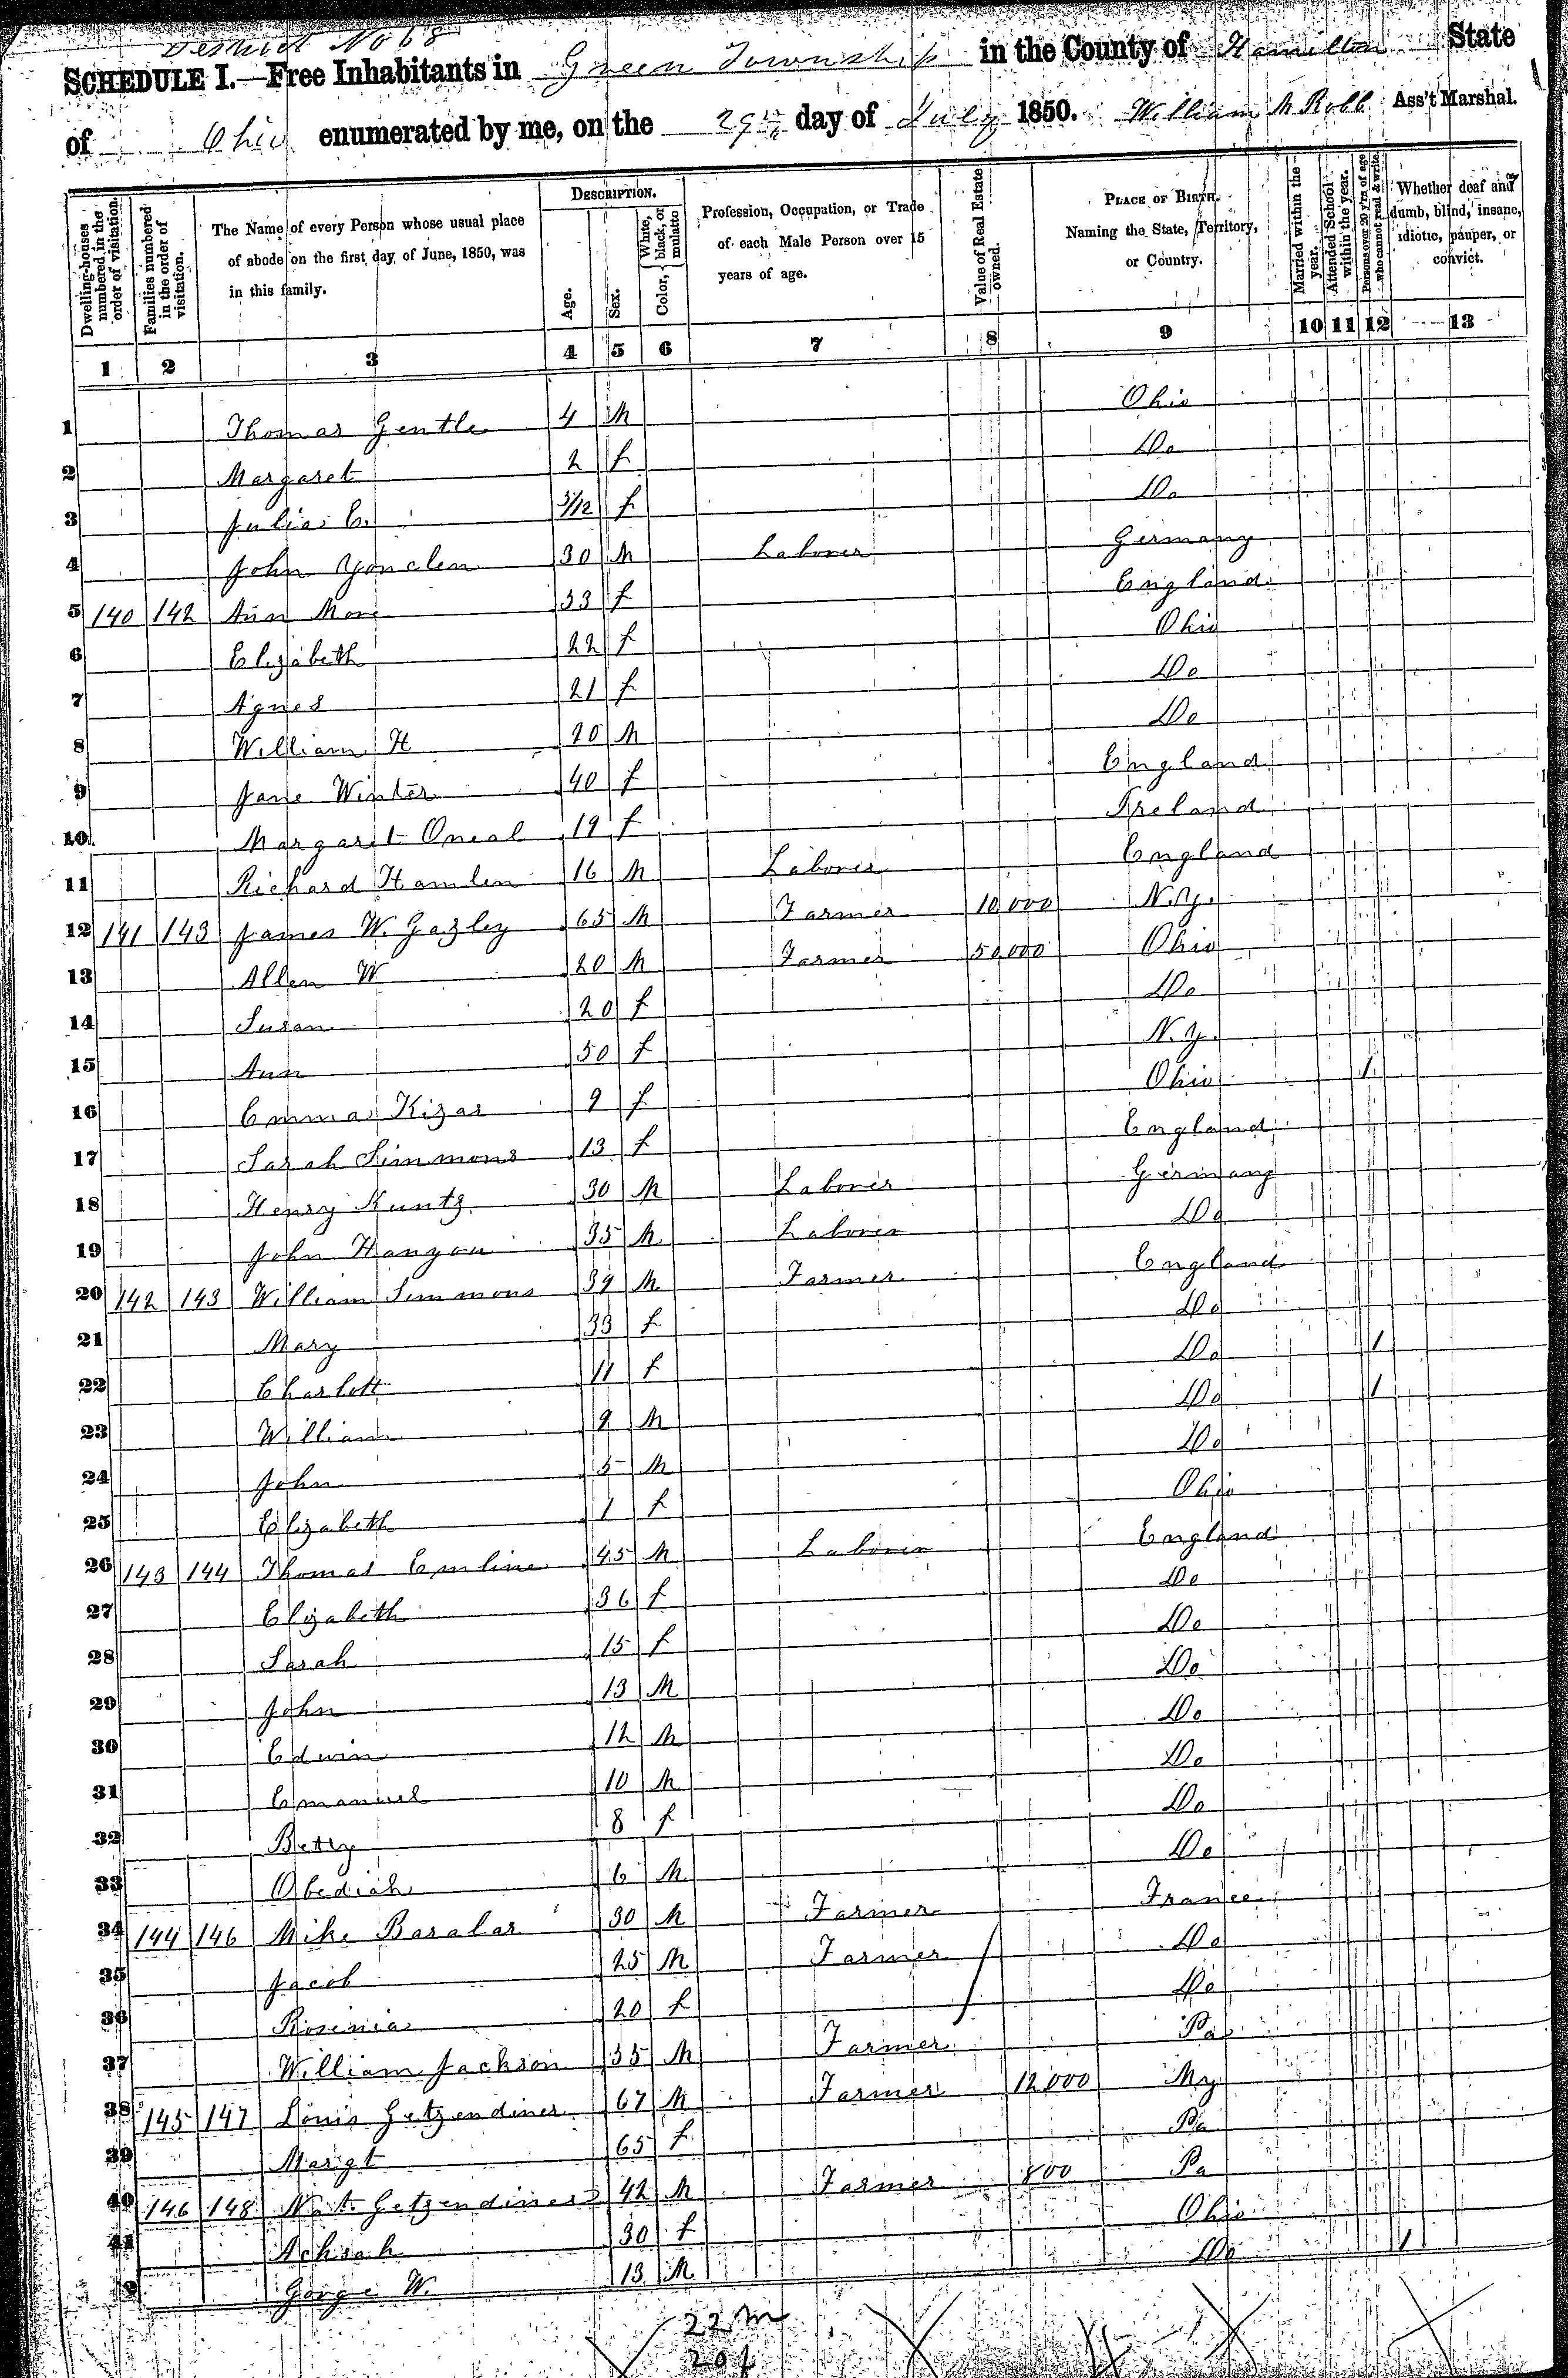 District No 68
SCHEDULE I.—Free Inhabitants in Green Township in the County of Hamilton State
of Ohio enumerated by me, on the 29th day of July 1850. William M Robb Ass't Marshal.
Dwelling-houses numbered in the order of visitation.
Families numbered in the order of visitation.
The Name of every Person whose usual place of abode on the first day of June, 1850, was in this family.
DESCRIPTION.
Age.
Sex.
Color, { White, black, or mulatto
Profession, Occupation, or Trade of each Male Person over 15 years of age.
Value of Real Estate owned.
PLACE OF BIRTH. Naming the State, Territory, or Country.
Married within the year.
Attended School within the year.
Persons over 20 y'rs of age who cannot read & write.
Whether deaf and dumb, blind, insane, idiotic, pauper, or convict.
1 2 3 4 5 6 7 8 9 10 11 12 13
1 Thomas Gentle 4 M Ohio
2 Margaret 2 f Do
3 Julia C. 5/12 f Do
4 John Yonclen 30 M Laborer Germany
5 140 142 Ann More 33 f England
6 Elizabeth 22 f Ohio
7 Agnes 21 f Do
8 William H 20 M Do
9 Jane Winter 40 f England
10 Margaret Oneal 19 f Ireland
11 Richard Hamlen 16 M Laborer England
12 141 143 James W. Gazley 65 M Farmer 10,000 N.Y.
13 Allen W 20 M Farmer 50,000 Ohio
14 Susan 20 f Do
15 Ann 50 f N.Y.
16 Emma Kizar 9 f Ohio 1
17 Sarah Simmons 13 f England
18 Henry Kuntz 30 M Laborer Germany
19 John Hanzou 35 M Laborer Do
20 142 143 William Simmons 39 M Farmer England
21 Mary 33 f Do
22 Charlott 11 f Do 1
23 William 9 M Do 1
24 John 5 M Do
25 Elizabeth 1 f Ohio
26 143 144 Thomas Emline 45 M Laborer England
27 Elizabeth 36 f Do
28 Sarah 15 f Do
29 John 13 M Do
30 Edwin 12 M Do
31 Emanuel 10 M Do
32 Betty 8 f Do
33 Obediah 6 M Do
34 144 146 Mike Baralar 30 M Farmer France
35 Jacob 25 M Farmer Do
36 Rosinia 20 f Do
37 William Jackson 35 M Farmer Pa
38 145 147 Louis Getzendiner 67 M Farmer 12,000 My
39 Margt 65 f Pa
40 146 148 N. A. Getzendiner 42 M Farmer 800 Pa
41 Achsah 30 f Ohio
42 Gorge W. 13 M Do 1
22 m
20 f